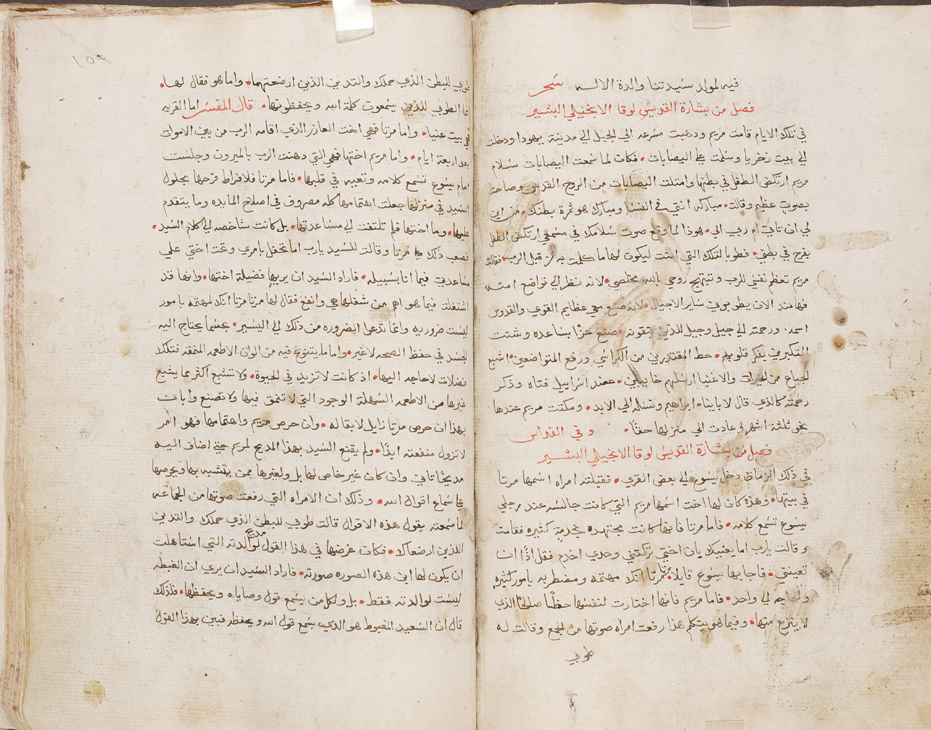 فيه لمولد سيدتنا والدة الاله سَحَر
فصل من بشارة القديس لوقا الانجيلي البشير
في تلك الايام قامت مريم وذهبت مسرعه الي الجبل الي مدينة يهودا ودخلت
الي بيت زخريا وسلمت علي اليصابات • فكان لما سمعت اليصابات سلام
مريم ارتكض الطفل في بطنها وامتلت اليصابات من الروح القدس وصاحت
بصوتٍ عظيم وقالت • مباركه انتي في النسا ومبارك هو ثمرة بطنك • من اين
لي ان تاتي ام ربي الي • هوذا لما وقع صوت سلامك في مسمعي ارتكض الطفل
بفرح في بطني • فطوبا لتلك التي امنت ليكون لها ما كلمت به من قبل الرب • فقالت
مريم تعظم نفسي للرب وتبتهج روحي بالله مخلصي • لانه نظر الي تواضع امته
فها منذ الان يطوبوني ساير الاجيال • لانه صنع معي عظايم القوي والقدوس
اسمه • ورحمته الي جيل وجيل للذين يتقونه • صنع عزًا بساعده وشتت
المتكبرين بفكر قلوبهم • حط المقتدرين من الكراسي ورفع المتواضعين • اشبع
الجياع من الخيرات والاغنيا ارسلهم خايبين • عضد اسراييل فتاه وذكر
رحمته كالذي قال لاباينا • ابراهيم ونسله الي الابد • ومكثت مريم عندها
نحو ثلثة اشهر وعادت الي منزلها حقًا • وفي القداس
فصل من بشارة القديس لوقا الانجيلي البشير
في ذلك الزمان دخل يسوع الي بعض القري • فقبلته امراه اسمها مرتا
في بيتها • وهذه كان لها اخت اسمها مريم التي كانت جالسه عند رجلي
يسوع تسمع كلامه • فاما مرتا فانها كانت مجتهده بخدمة كثيره فقامت
وقالت يارب اما يعنيك بان اختي تركتني وحدي اخدم فقل لها ان
تعينني • فاجابها يسوع قايلًا • مرتا مرتا انك مهتمه ومضطربه بامور كثيره
والحاجه الي واحد • فاما مريم فانها اختارت لنفسها حظًا صلحًا الذي
لا ينتزع منها • وفيما هو يتكلم هذا رفعت امراه صوتها من الجمع وقالت له
طوبي
طوبي للبطن الذي حملك والثديين الذين ارضعتهما • واما هو فقال لها •
انما الطوبي للذين يسمعون كلمة الله ويحفظونها • قال المفسر اما القريه
فهي بيت عنيا • واما مرتا فهي اخت العازر الذي اقامه الرب من بين الاموات
بعد اربعة ايام • واما مريم اختها فهي التي دهنت الرب بالميرون وجلست
امام يسوع تسمع كلامه وتعيه في قلبها • فاما مرتا فلافراط فرحها بحلول
السيد في منزلها جعلت اهتمامها كله مصروف في اصلاح المايده وما يتقدم
عليها • وما اختها فلم تلتفت الي مساعدتها • بل كانت شاخصه الي كلام السيد •
فصعب ذلك علي مرتا وقالت للسيد يارب اما تحفل بامري وتحت اختي علي
مساعدتي فيما انا بسبيله • فاراد السيد ان يريها فضيلة اختها • وانها قد
اشتغلت فيما هو اهم من شغلها هي وانفع فقال لها مرتا مرتا انك مهتمه بامور
ليست ضروريه وانما تدعوا الضروره من ذلك الي اليسير • حسبما يحتاج اليه
الجسد في حفظ الصحه لا غير • واما ما يتنوع فيه من الوان الاطعمه المتفقه فتلك
فضلات لا حاجه اليها • اذ كانت لا تزيد في الحيوة • ولا تشبع اكثر مما يشبع
غيرها من الاطعمه السهلة الوجود التي لا تمعن فيها ولا تصنع وابان
بهذا ان حرص مرتا زايل لا بقا له • وان حرص مريم واهتمامها فهو امر
لا تزول منفعته ابدًا • ولم يقنع السيد بهذا المديح لمريم حتي اضاف اليه
مديحًا ثاني وان كان غير خاص لها بل ولغيرها ممن يتشبه بها وبحرصها
علي سماع اقوال الله • وذلك ان الامراه التي رفعت صوتها من الجماعه
لما سمعته يقول هذه الاقوال قالت طوبي للبطن الذي حملك والثديين
اللذين ارضعاك • فكان غرضها في هذا القول مدح لوالدته التي استاهلت
ان يكون لها ابن هذه الصوره صورته • فاراد السيد ان يري ان الغبطه
ليست لوالدته فقط • بل ولكل من يسمع قول وصاياه ويحفظها • فلذلك
قال ان السعيد المغبوط هو الذي يسمع قول الله ويحفظه فبين بهذا القول